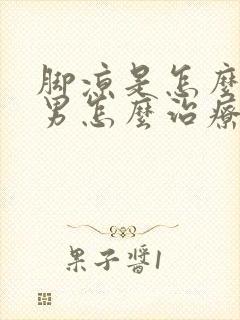 脚凉是怎麼
男怎麼治療
果子醬1